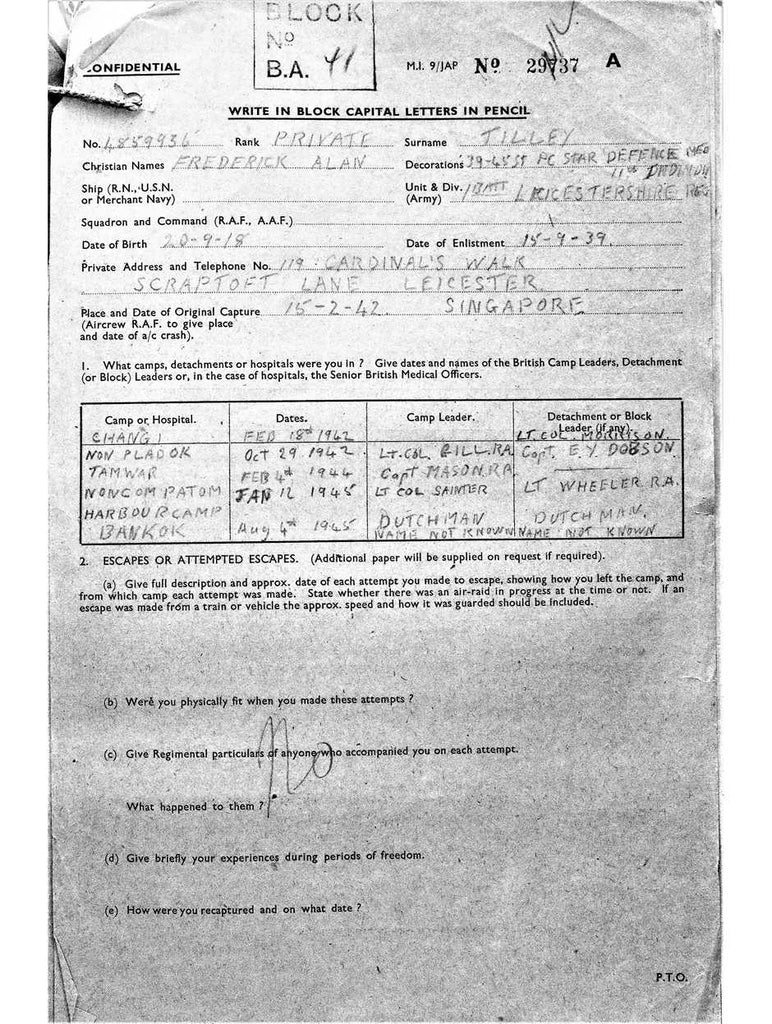 BLOCK
No
B.A. 41
CONFIDENTIAL
M.I. 9/JAP No 29737 A
WRITE IN BLOCK CAPITAL LETTERS IN PENCIL
No. 4859936 Rank PRIVATE Surname TILLEY
Christian Names FREDERICK ALAN Decorations 39-45 ST PC STAR DEFENCE MED
Ship (R.N., U.S.N.
or Merchant Navy)
Unit & Div. 1 BATT LEICESTERSHIRE REG
(Army)
Squadron and Command (R.A.F., A.A.F.)
Date of Birth 20-9-18 Date of Enlistment 15-9-39.
Private Address and Telephone No. 119 CARDINAL'S WALK
SCRAPTOFT LANE LEICESTER
Place and Date of Original Capture 15-2-42 SINGAPORE
(Aircrew R.A.F. to give place
and date of a/c crash).
1. What camps, detachments or hospitals were you in ? Give dates and names of the British Camp Leaders, Detachment
(or Block) Leaders or, in the case of hospitals, the Senior British Medical Officers.
Camp or Hospital. Dates. Camp Leader. Detachment or Block
Leader (if any).
CHANGI FEB 18th 1942 LT. COL. MORRISON.
NON PLADOK Oct 29 1942 LT. COL. GILL. RA Capt. E.Y. DOBSON.
TAMWAR FEB 4th 1944 Capt MASON. RA
NONCOM PATOM JAN 12 1945 LT COL SAINTER LT WHEELER R.A.
HARBOUR CAMP DUTCHMAN DUTCHMAN.
BANKOK Aug 4th 1945 NAME NOT KNOWN NAME NOT KNOWN
2. ESCAPES OR ATTEMPTED ESCAPES. (Additional paper will be supplied on request if required).
(a) Give full description and approx. date of each attempt you made to escape, showing how you left the camp, and
from which camp each attempt was made. State whether there was an air-raid in progress at the time or not. If an
escape was made from a train or vehicle the approx. speed and how it was guarded should be included.
(b) Were you physically fit when you made these attempts ?
(c) Give Regimental particulars of anyone who accompanied you on each attempt.
No
What happened to them ?
(d) Give briefly your experiences during periods of freedom.
(e) How were you recaptured and on what date ?
P.T.O.